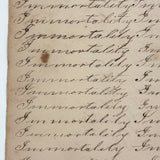 Immortality
Immortality I
Immortality I
Immortality I
Immortality I
Immortality I
Immortality I
Immortality I
Immortality I
Immortality I
Immortality I
Immortality